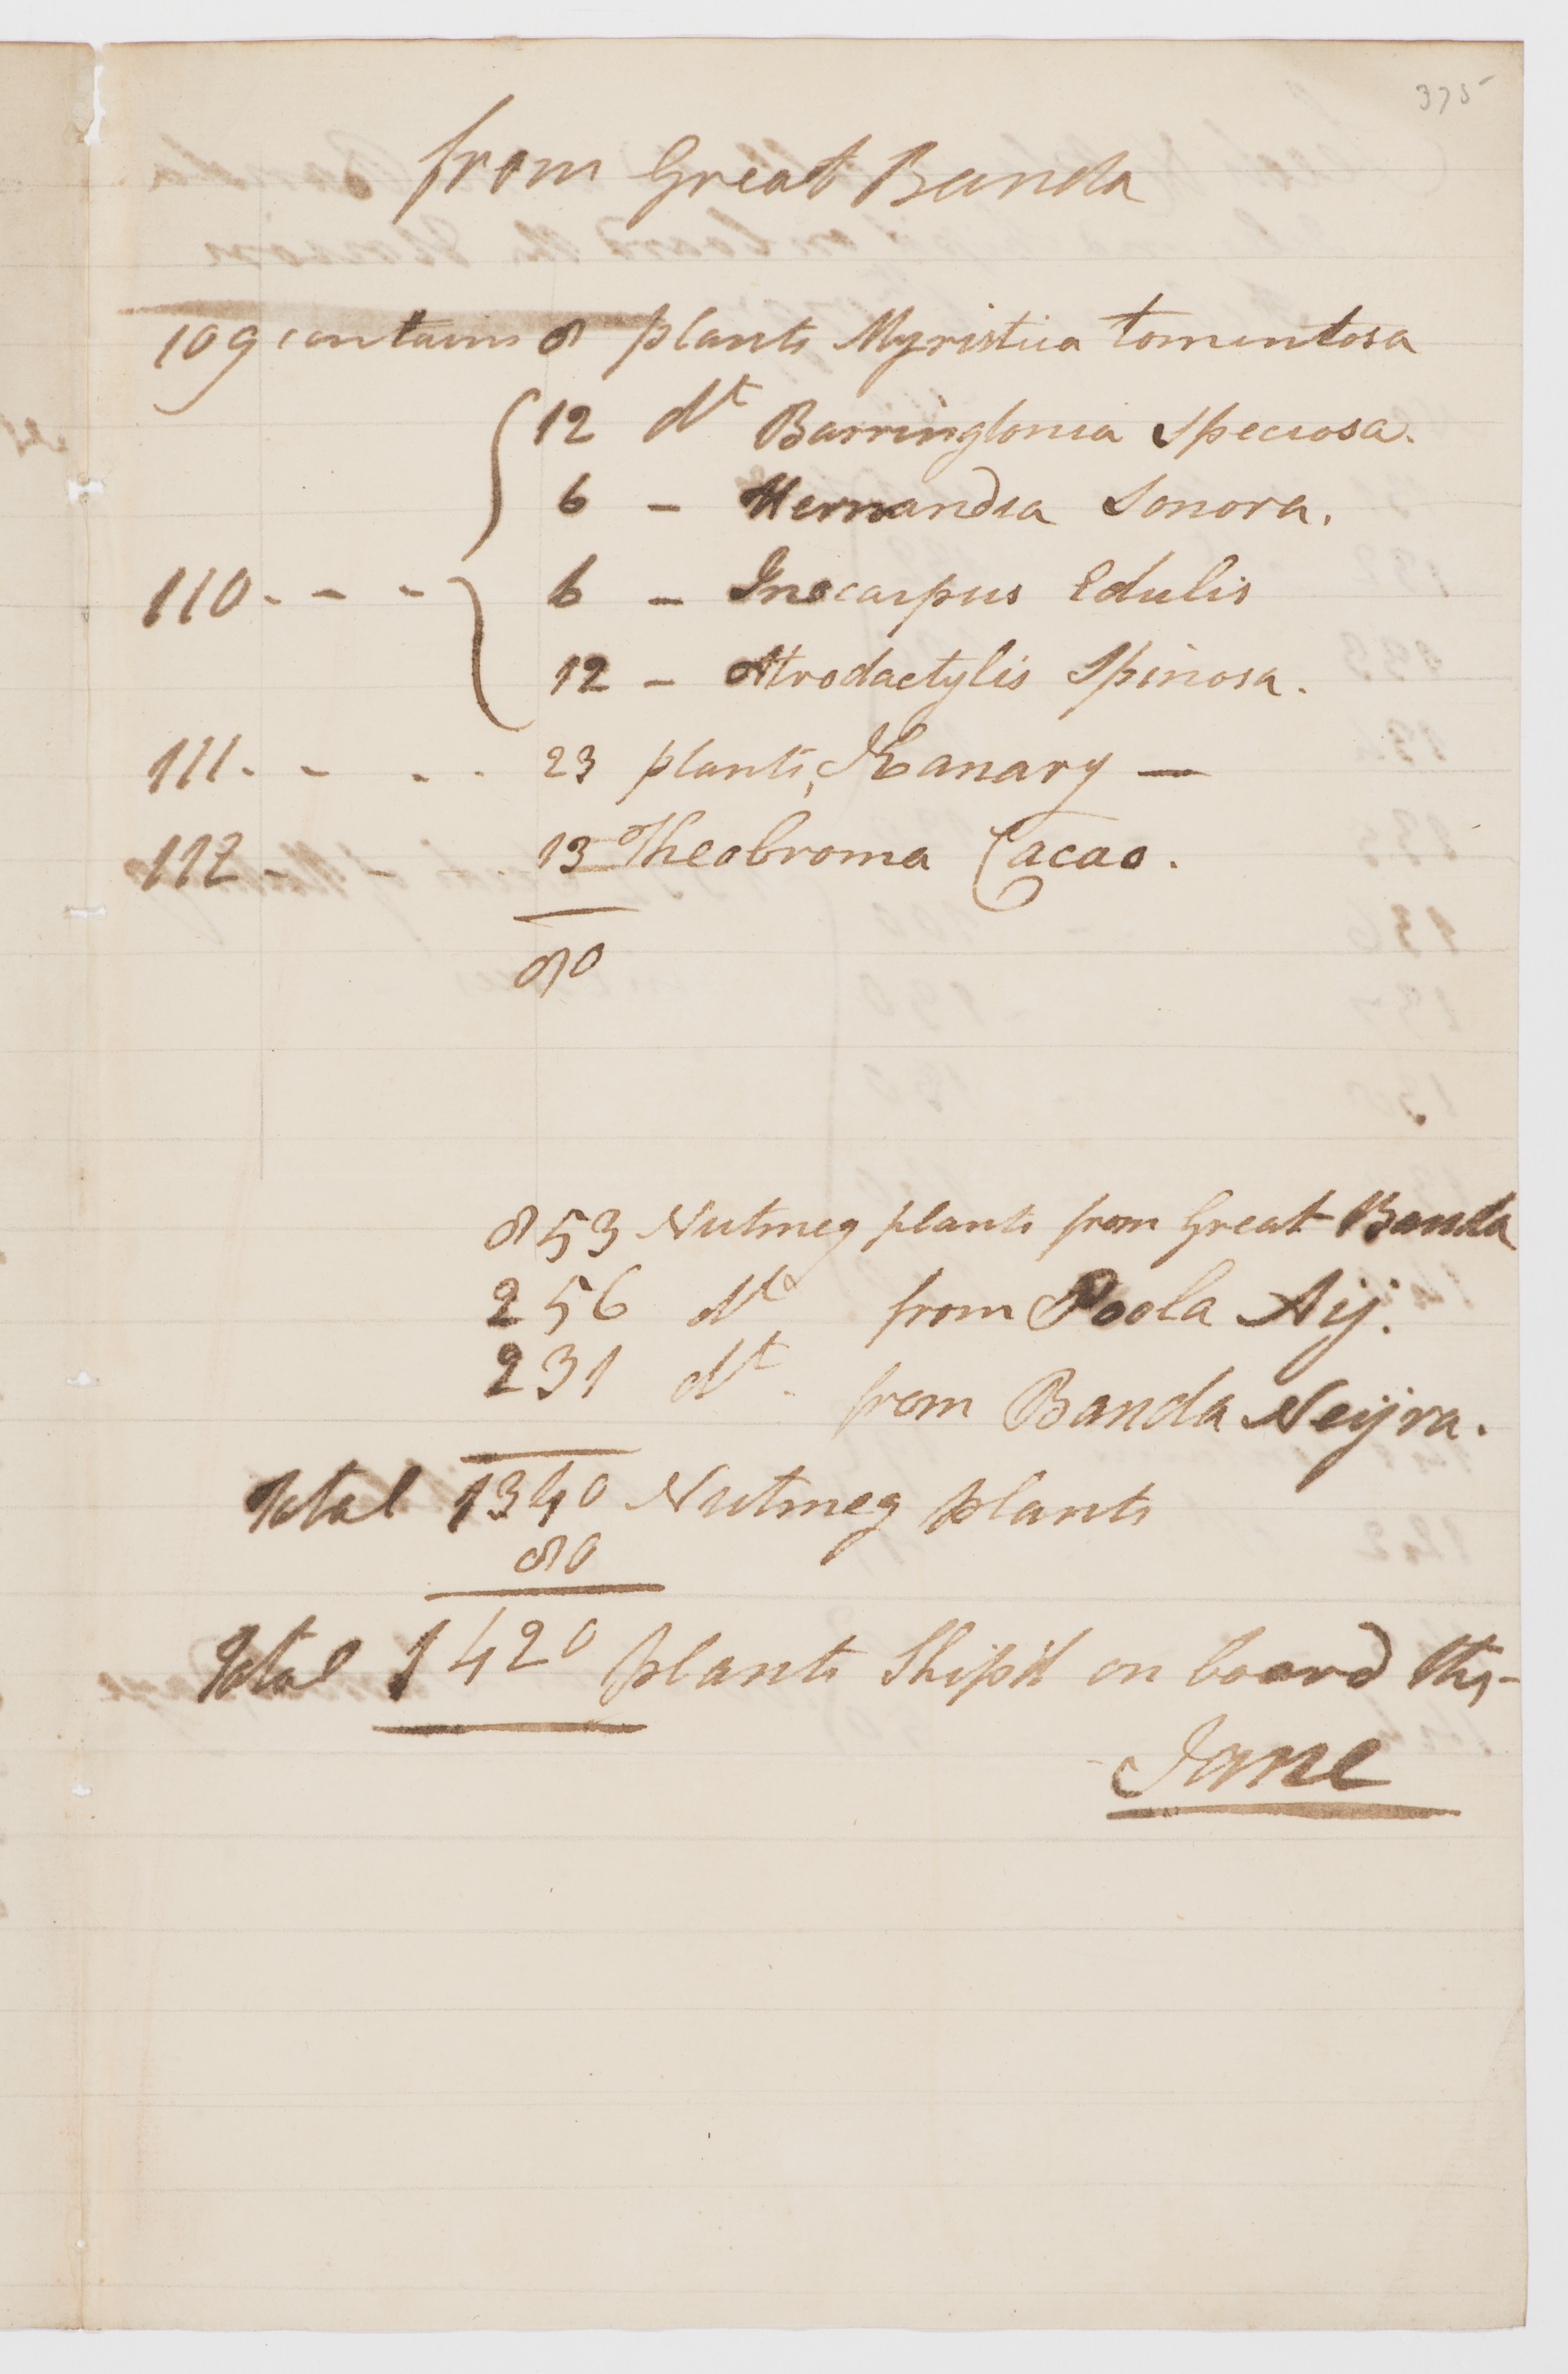 375
from Great Banda
109 contains 8 plants Myristica tomentosa
12 dt Barringtonia Speciosa.
6 – Hernandia Sonora.
110 - - - 6 – Inocarpus Edulis
12 – Atrodactylis Spinosa.
111 - - - - 23 plants, Kanary —
112 - 13 Theobroma Cacao.
80
853 Nutmeg plants from Great Banda
256 dt from Poola Aij.
231 dt from Banda Neijra.
Total 1340 Nutmeg plants
80
Total 1420 plants Ship'd on board the
Jane